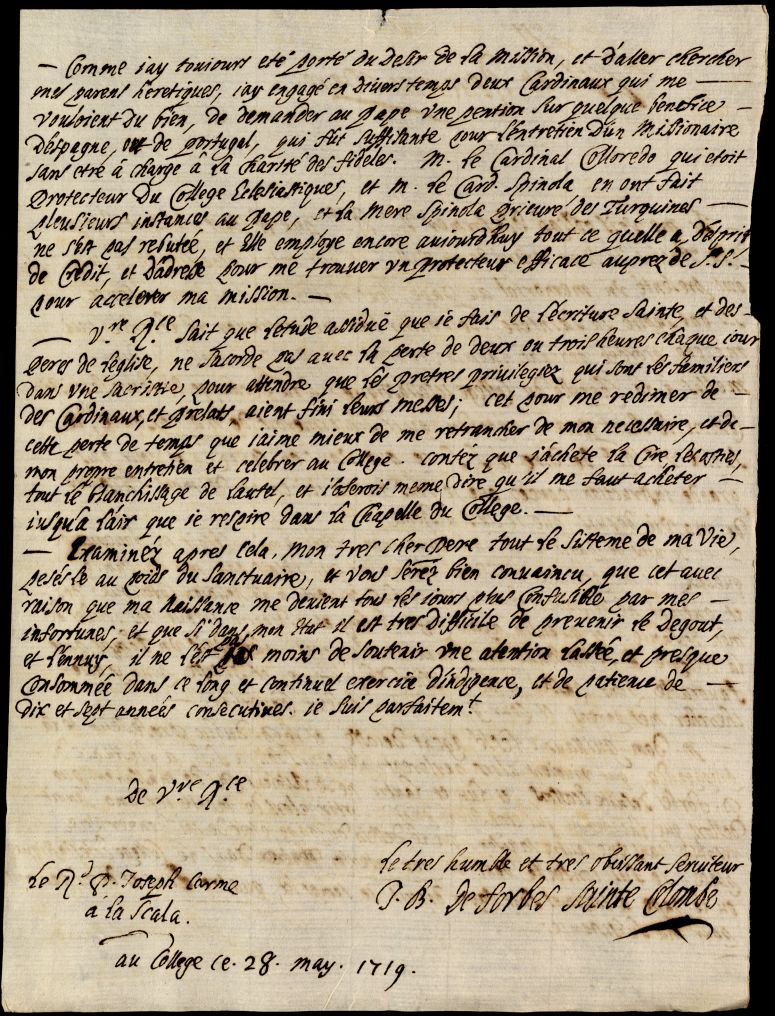 — Comme iay toujours eté porté du desir de la mission, et d'aller chercher
mes parens heretiques, iay engagé en divers temps deux Cardinaux qui me —
vouloient du bien, de demander au pape vne pention sur quelque benefice —
d'Espagne, ou de portugal, qui fut suffisante pour l'entretien d'un Missionaire
sans etre à charge à la charité des fideles. M. le Cardinal Colloredo qui etoit
Protecteur du College Eclesiastiques, et M. le Card. Spinola en ont fait
pleusieurs instances au pape, et la Mere Spinola prieure des Turquines —
ne s'est pas rebutée, et Elle employe encore aujourdhuy tout ce quelle a d'Esprit
de Credit, et d'adresse pour me trouver vn protecteur efficace auprez de S. S. —
pour accelerer ma mission. —
— V.re R.ce sait que letude assiduë que ie fais de l'ecriture Sainte, et des
Peres de leglise, ne sacorde pas avec la perte de deux ou trois heures chaque iour
dans vne sacristie, pour attendre que les pretres privilegiez qui sont les familiers
des Cardinaux, et prelats, aient fini leurs messes; cet pour me redimer de —
cette perte de temps que iaime mieux de me retrancher de mon necessaire, et de —
mon propre entretien et celebrer au College. contéz que j'achete la Cire les osties,
tout le blanchissage de lautel, et i'oserois meme dire qu'il me faut acheter —
iusqu'a l'air que ie respire dans la Chapelle du College. —
— Examinéz apres cela, mon tres cher Pere tout le sisteme de ma vie,
pesés le au poids du Sanctuaire, et vous seréz bien convaincu, que cet avec
raison que ma naissance me devient tous les iours plus Confusible par mes —
infortunes; et que si dans mon etat il est tres difficile de prevenir le degout,
et l'ennuy, il ne l'est pas moins de soutenir vne atention lassée, et presque
Consommée dans ce long et continuel exercice d'indigence, et de patience de —
dix et sept années consecutives. ie suis parfaitem.t
De V.re R.ce
Le tres humble et tres obeissant serviteur
J. B. De Forbes Sainte Colombe
Le R.d P. Joseph Carme
à la Scala.
au College ce. 28. may. 1719.